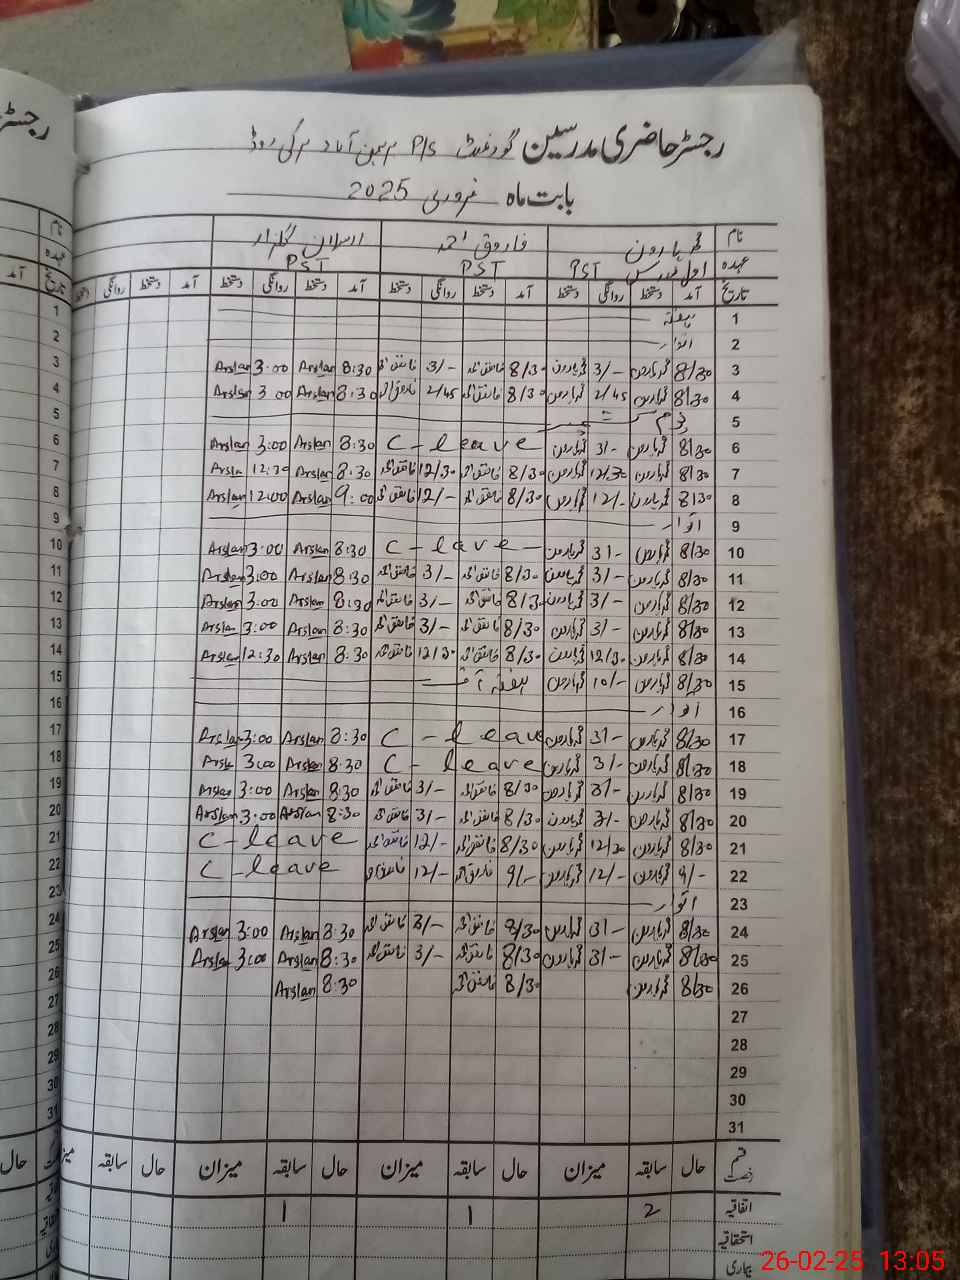 رجسٹر حاضری مدرسین گورنمنٹ P/S
بابت ماہ فروری 2025
نام محمد ہارون فاروق احمد ارسلان گلزار
عہدہ اول مدرس PST PST PST
تاریخ آمد دستخط روانگی دستخط آمد دستخط روانگی دستخط آمد دستخط روانگی دستخط آمد دستخط روانگی دستخط
1 ہفتہ
2 اتوار
3 8/30 محمد ہارون 3/- محمد ہارون 8/30 فاروق احمد 3/- فاروق احمد 8:30 Arslan 3:00 Arslan
4 8/30 محمد ہارون 2/45 محمد ہارون 8/30 فاروق احمد 2/45 فاروق احمد 8:30 Arslan 3:00 Arslan
5 یوم کشمیر
6 8/30 محمد ہارون 3/- محمد ہارون C-leave 8:30 Arslan 3:00 Arslan
7 8/30 محمد ہارون 12/30 محمد ہارون 8/30 فاروق احمد 12/30 فاروق احمد 8:30 Arslan 12:30 Arsln
8 8/30 محمد ہارون 12/- محمد ہارون 8/30 فاروق احمد 12/- فاروق احمد 9:00 Arslan 12:00 Arslan
9 اتوار
10 8/30 محمد ہارون 3/- محمد ہارون C-leave 8:30 Arslan 3:00 Arslan
11 8/30 محمد ہارون 3/- محمد ہارون 8/30 فاروق احمد 3/- فاروق احمد 8:30 Arslan 3:00 Arslan
12 8/30 محمد ہارون 3/- محمد ہارون 8/30 فاروق احمد 3/- فاروق احمد 8:30 Arslan 3:00 Arslan
13 8/30 محمد ہارون 3/- محمد ہارون 8/30 فاروق احمد 3/- فاروق احمد 8:30 Arslan 3:00 Arslan
14 8/30 محمد ہارون 12/30 محمد ہارون 8/30 فاروق احمد 12/30 فاروق احمد 8:30 Arslan 12:30 Arslan
15 8/30 محمد ہارون 10/- محمد ہارون ہفتہ آف
16 اتوار
17 8/30 محمد ہارون 3/- محمد ہارون C-leave 8:30 Arslan 3:00 Arslan
18 8/30 محمد ہارون 3/- محمد ہارون C-leave 8:30 Arslan 3:00 Arsln
19 8/30 محمد ہارون 3/- محمد ہارون 8/30 فاروق احمد 3/- فاروق احمد 8:30 Arslan 3:00 Arslan
20 8/30 محمد ہارون 3/- محمد ہارون 8/30 فاروق احمد 3/- فاروق احمد 8:30 Arslan 3:00 Arslan
21 8/30 محمد ہارون 12/30 محمد ہارون 8/30 فاروق احمد 12/- فاروق احمد C-leave
22 9/- محمد ہارون 12/- محمد ہارون 9/- فاروق احمد 12/- فاروق احمد C-leave
23 اتوار
24 8/30 محمد ہارون 3/- محمد ہارون 8/30 فاروق احمد 3/- فاروق احمد 8:30 Arslan 3:00 Arslan
25 8/30 محمد ہارون 3/- محمد ہارون 8/30 فاروق احمد 3/- فاروق احمد 8:30 Arslan 3:00 Arslan
26 8/30 محمد ہارون 8/30 فاروق احمد 8:30 Arslan
27
28
29
30
31
قسم رخصت حال سابقہ میزان حال سابقہ میزان حال سابقہ میزان حال سابقہ
اتفاقیہ 2 1 1
استحقاقیہ
بیماری
26-02-25 13:05